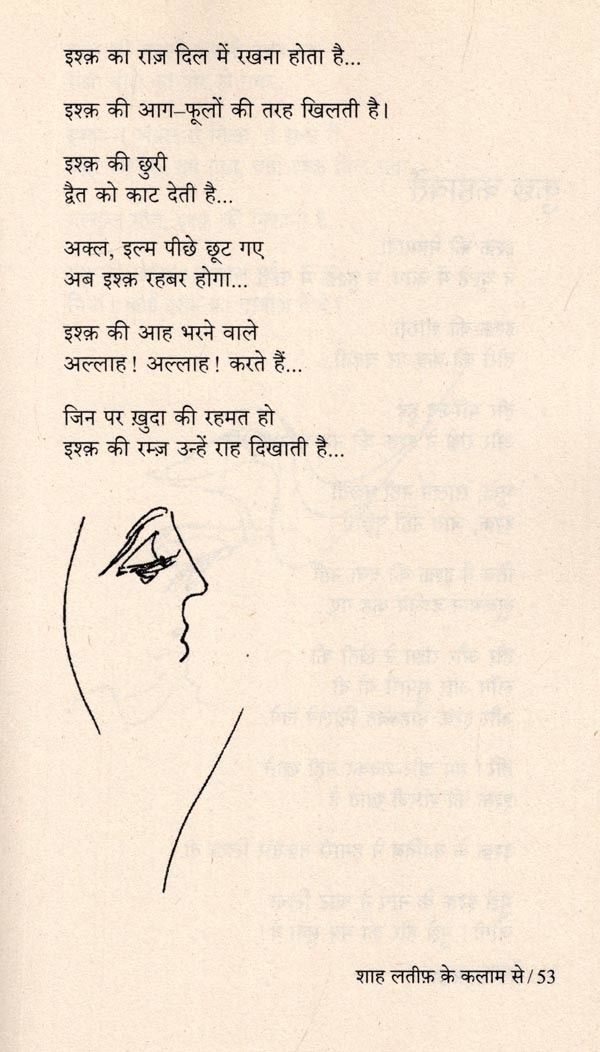 इश्क़ का राज़ दिल में रखना होता है...
इश्क़ की आग–फूलों की तरह खिलती है।
इश्क़ की छुरी
द्वैत को काट देती है...
अक्ल, इल्म पीछे छूट गए
अब इश्क़ रहबर होगा...
इश्क़ की आह भरने वाले
अल्लाह! अल्लाह! करते हैं...
जिन पर ख़ुदा की रहमत हो
इश्क़ की रम्ज़ उन्हें राह दिखाती है...
शाह लतीफ़ के कलाम से/53